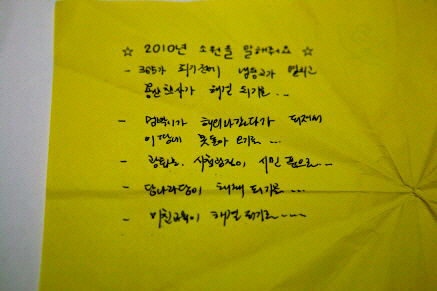 ☆ 2010년 소원을 말해줘요 ☆
- 365가 되기전에 냉동고가 열리고
용산참사가 해결 되기를...
- 명박이가 해외나갔다가 뒈져서
이땅에 못돌아 오기를...
- 광합문, 시청광장이 시민 품으로...
- 딴나라당이 해체 되기를...
- 미친교육이 해결 되기를....